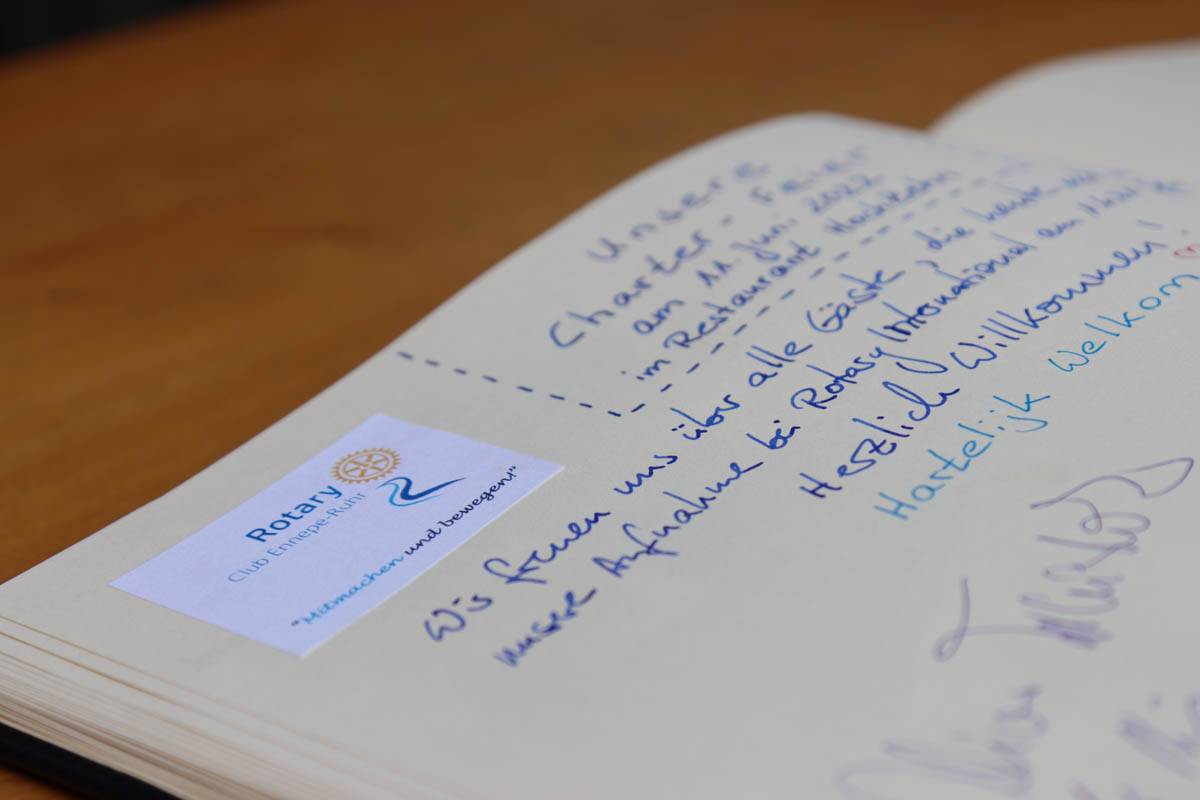 Unsere
Charter-Feier
am 11. Juni 2022
im Restaurant
Rotary
Club Ennepe-Ruhr
"Mitmachen und bewegen!"
Wir freuen uns über alle Gäste, die heute
unsere Aufnahme bei Rotary International am
Herzlich Willkommen!
Hartelijk Welkom